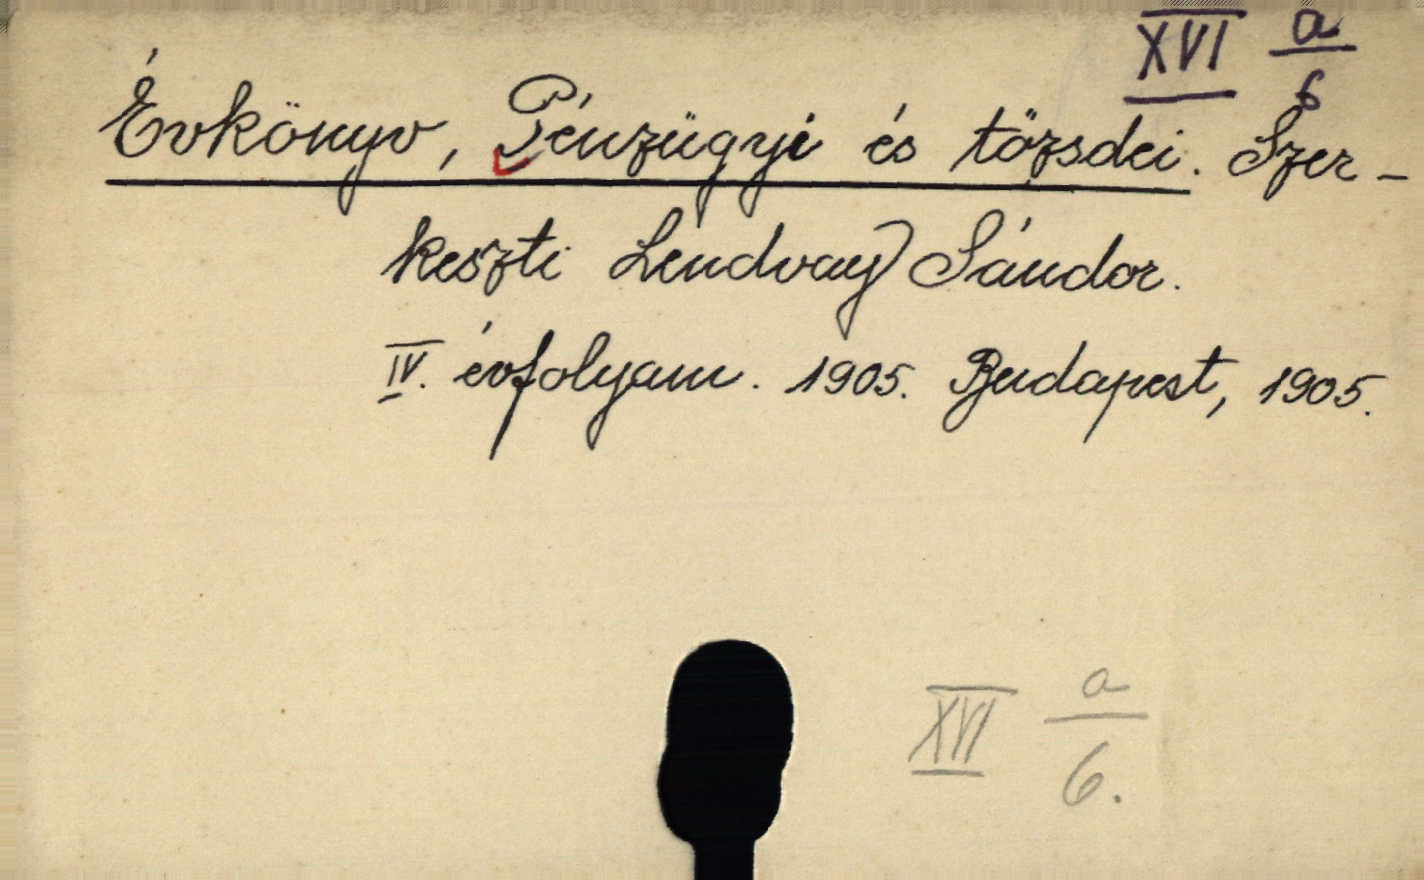 XVI a/6
Évkönyv, Pénzügyi és tőzsdei. Szer-
keszti Lendvay Sándor.
IV. évfolyam. 1905. Budapest, 1905.
XVI a/6.